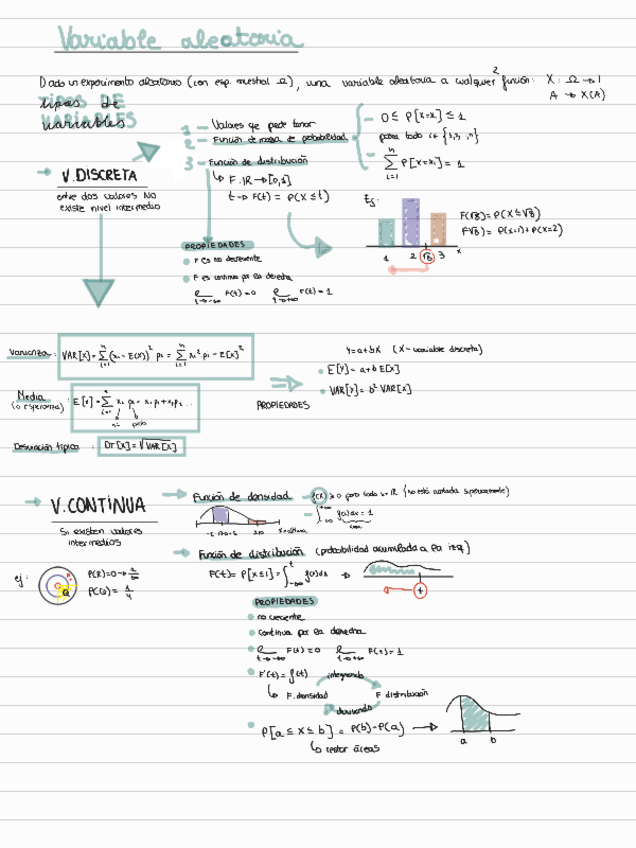 Variable aleatoria
Dado un experimento aleatorio (con esp. muestral Ω), una variable aleatoria a cualquier función: X: Ω → 1
A → X(A)
TIPOS DE
VARIABLES
tipos de
variables
V. DISCRETA
entre dos valores NO
existe nivel intermedio
1 - Valores que puede tomar
2 - Función de masa de probabilidad
3 - Función de distribución
F: IR → [0,1]
t → F(t) = P(X ≤ t)
0 ≤ P[X=xi] ≤ 1
para todo i ∈ {1,2, ,n}
n
Σ P[X=xi] = 1
i=1
Ej:
1 2 √8 3 x
F(√8) = P(X ≤ √8)
F(√8) = P(x=1) + P(x=2)
PROPIEDADES
F es no decreciente
F es continua por la derecha
F(t) = 0 F(t) = 1
t→-∞ t→+∞
Varianza: VAR[X] = Σ (xi - E(X))² pi = Σ xi² pi - E[X]²
Media
(o esperanza) :
Desviación típica : DT[X] = √VAR[X]
PROPIEDADES
Y = a+bX (X - variable discreta)
E[Y] = a+b E[X]
VAR[Y] = b² VAR[X]
V. CONTINUA
Si existen valores
intermedios
Función de densidad
f(x) ≥ 0 para todo x ∈ IR (no está acotada superiormente)
∫ f(x)dx = 1
Función de distribución (probabilidad acumulada a la izq]
F(t) = P[X ≤ t] = ∫ f(x)dx
t
ej:
PROPIEDADES
no creciente
continua por la derecha
F(t) = 0 F(t) = 1
t→-∞ t→+∞
F'(t) = f(t)
integrando
F. densidad F distribución
derivando
P[a ≤ X ≤ b] = F(b) - F(a)
restar áreas
a b